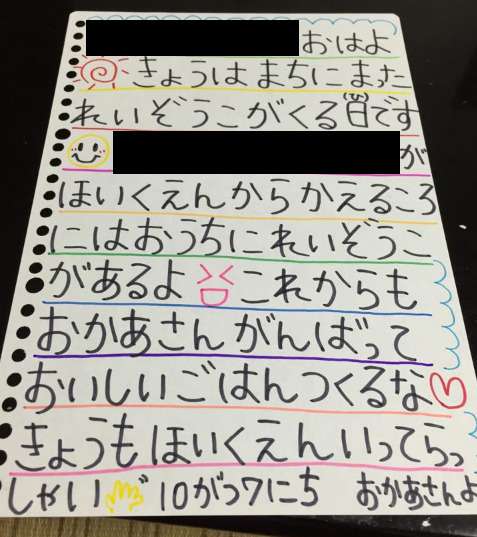 おはよ
きょうはまちにまた
れいぞうこがくる日(ひ)です
が
ほいくえんからかえるころ
にはおうちにれいぞうこ
があるよ これからも
おかあさんがんばって
おいしいごはんつくるな
きょうもほいくえんいってらっ
しゃい 10がつ7にち おかあさんよ